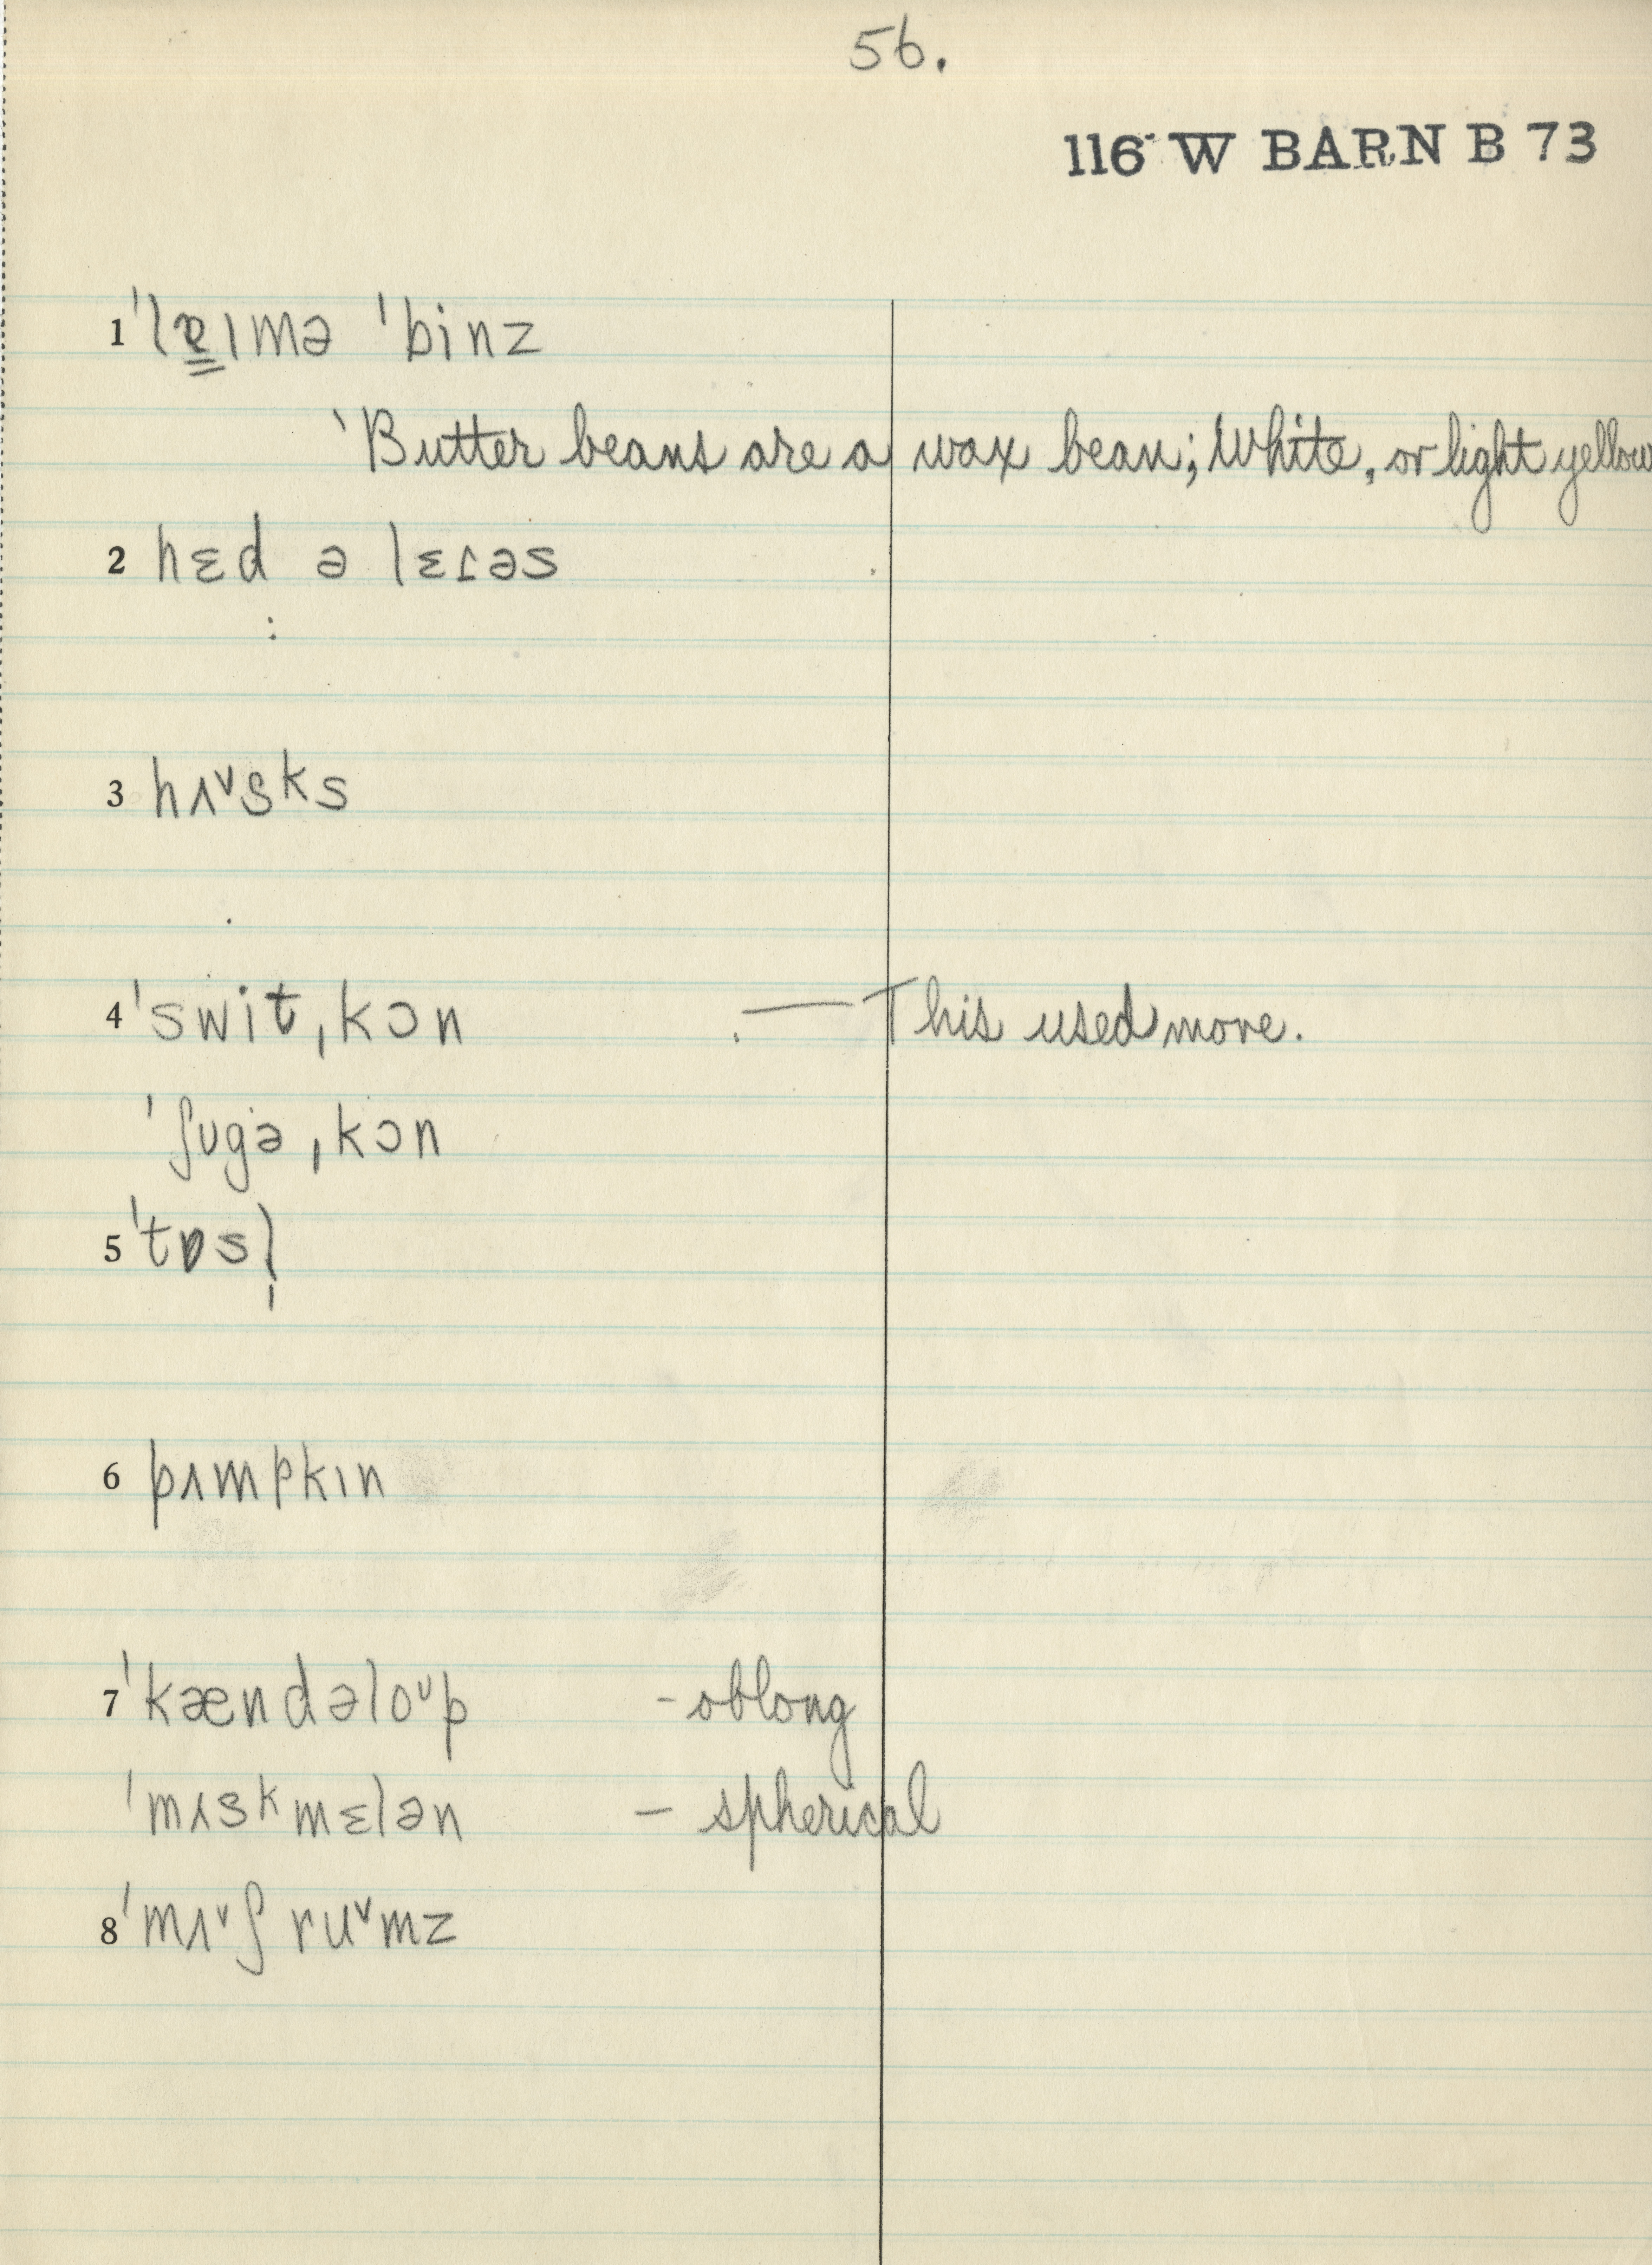 56.
116 W BARN B 73
1 ˈlɐ̳ɪmə ˈbinz
ˋButter beans are a wax bean; White, or light yellow
2 hɛd ə lɛɾəs
3 hʌᵛsks
4 ˈswit̬ˌkɔn .— This used more.
ˈʃʊgəˌkɔn
5 ˈtɒsl̩
6 pʌmpkɪn
7 ˈkændəloᶷp - oblong
ˈmʌskmɛlən – spherical
8 ˈmʌᵛʃruᵛmz